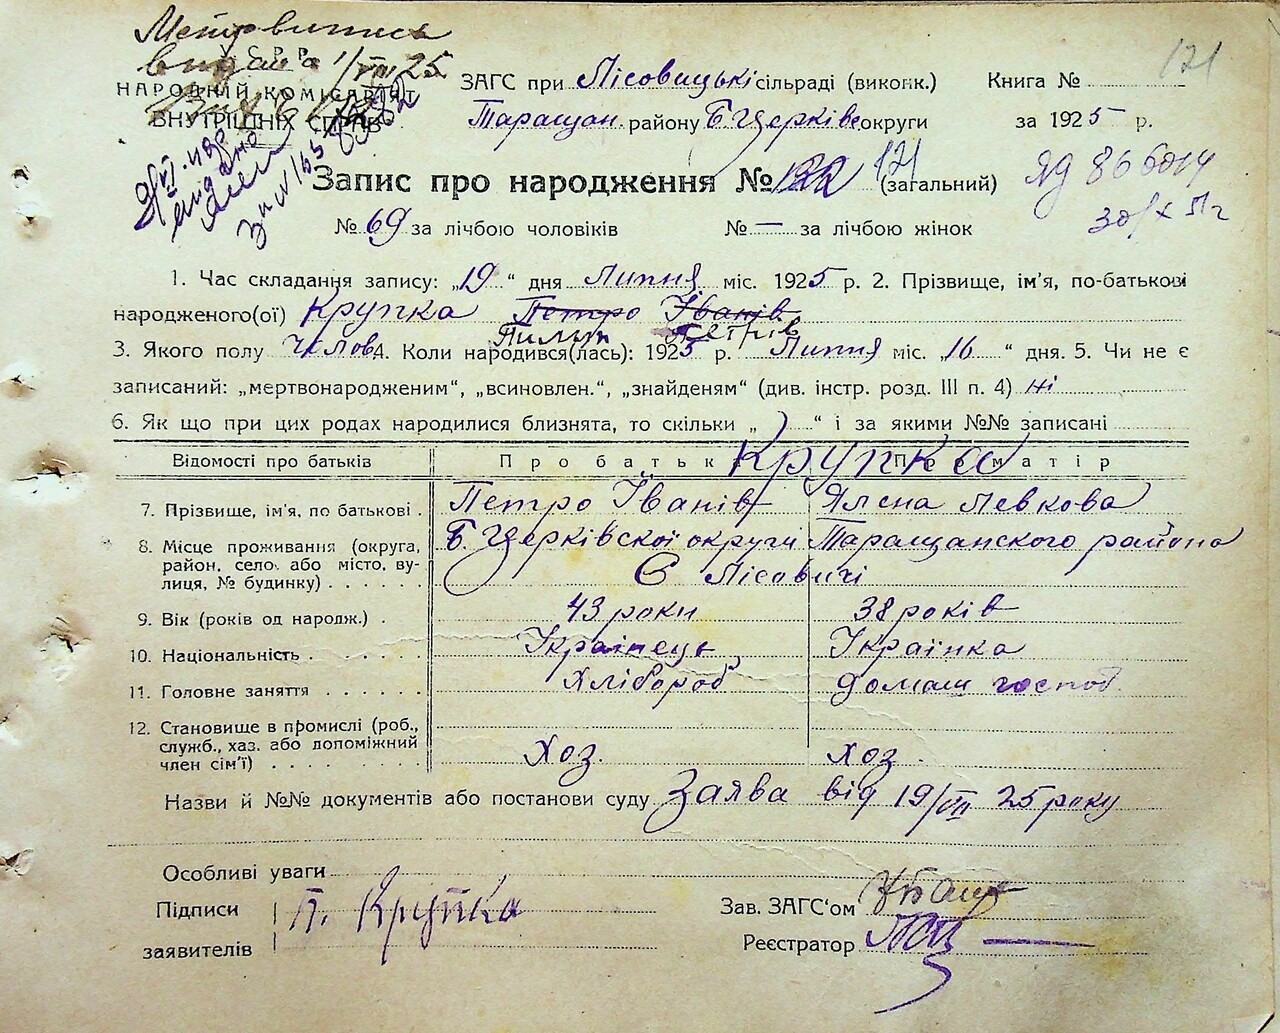 Метрвипись
видана 1/VIII 25
У.С.Р.Р.
НАРОДНІЙ КОМІСАРІЯТ
ВНУТРІШНІХ СПРАВ
ЗАГС при Лісовицькі сільраді (виконк.)
Таращан. району Б. Церківс округи
Книга №
121
за 1925 р.
Запис про народження № 122 121 (загальний)
ЯД 866
30/X
№ 69 за лічбою чоловіків № — за лічбою жінок
1. Час складання запису: „19“ дня Липня міс. 1925 р. 2. Прізвище, ім'я, по-батькові
народженого(ої) Крупка Петро Іванів
Пилип Петрів
3. Якого полу Чолов 4. Коли народився(лась): 1925 р. Липня міс. „16“ дня. 5. Чи не є
записаний: „мертвонародженим“, „всиновлен.“, „знайденям“ (див. інстр. розд. III п. 4) ні
6. Як що при цих родах народилися близнята, то скільки „ “ і за якими №№ записані
Відомості про батьків Про батька Про матір
Крупка
7. Прізвище, ім'я, по батькові . Петро Іванів Ялена Левкова
8. Місце проживання (округа, Б. Церківскої округи Таращанского района
район, село або місто, ву-
лиця, № будинку) С Лісовичі
9. Вік (років од народж.) . 43 роки 38 років
10. Національність Українець Українка
11. Головне заняття Хлібороб домаш господ
12. Становище в промислі (роб.,
служб., хаз. або допоміжний
член сім'ї) Хоз. Хоз.
Назви й №№ документів або постанови суду Заява від 19/VII 25 року
Особливі уваги
Підписи П. Крупка
заявителів
Зав. ЗАГС'ом
Реєстратор